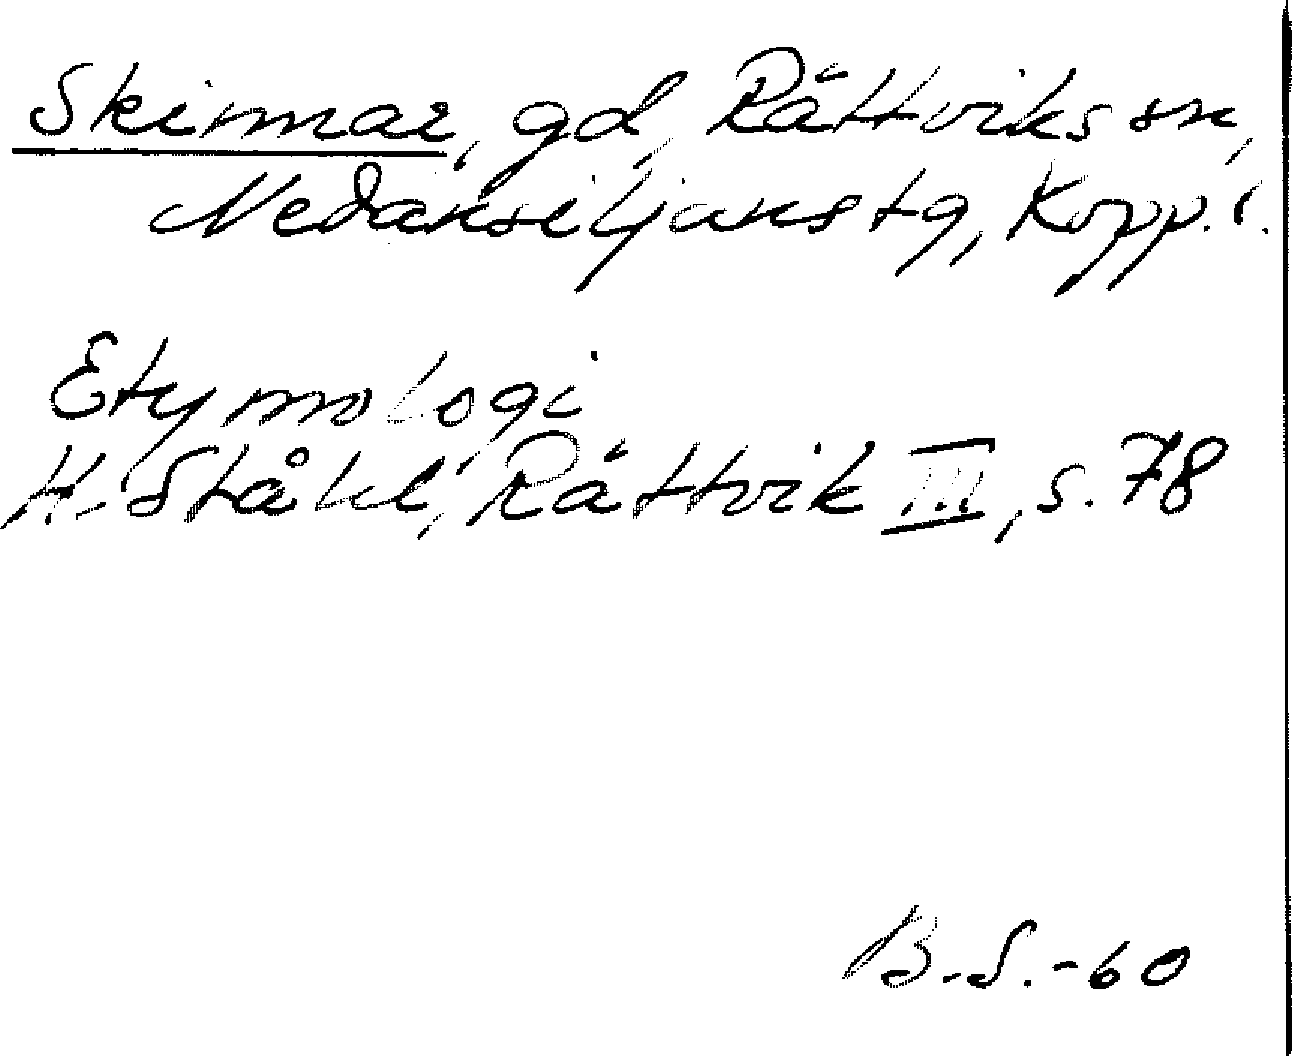 Skinnar, gd, Rättviks sn,
Nedansiljans tg, Kopp. l.
Etymologi
H. Ståhl, Rättvik III, s. 78
B. S. -60